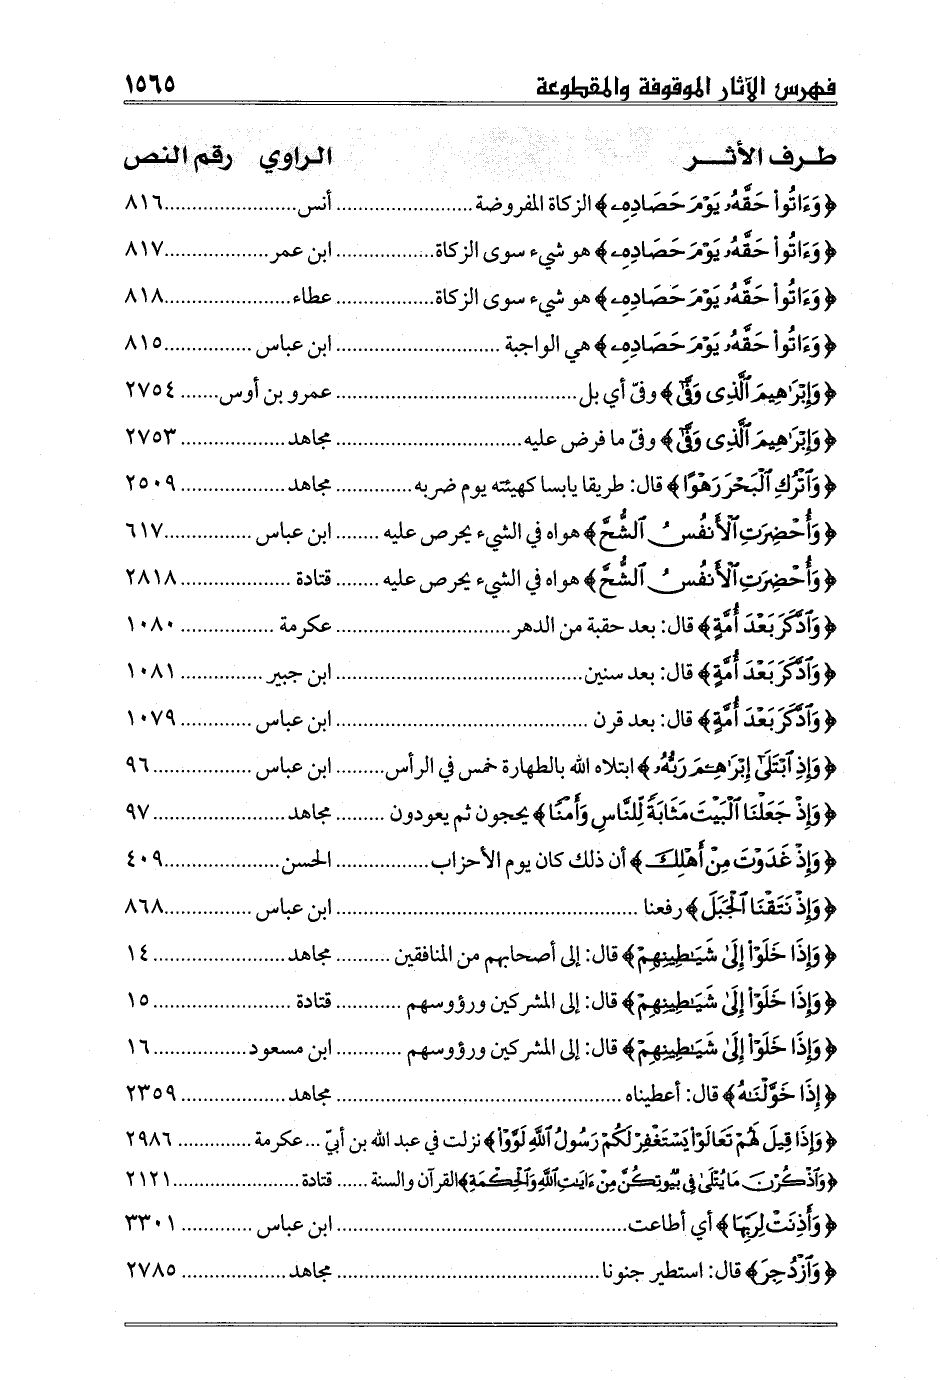 فهرس الآثار الموقوفة والمقطوعة ١٥٦٥
طرف الأثر الراوي رقم النص
﴿وَءَاتُوا۟ حَقَّهُۥ يَوْمَ حَصَادِهِۦ﴾ الزكاة المفروضة ........................ أنس........................٨١٦
﴿وَءَاتُوا۟ حَقَّهُۥ يَوْمَ حَصَادِهِۦ﴾ هو شيء سوى الزكاة.................. ابن عمر...................٨١٧
﴿وَءَاتُوا۟ حَقَّهُۥ يَوْمَ حَصَادِهِۦ﴾ هو شيء سوى الزكاة.................. عطاء......................٨١٨
﴿وَءَاتُوا۟ حَقَّهُۥ يَوْمَ حَصَادِهِۦ﴾ هي الواجبة ............................. ابن عباس ................٨١٥
﴿وَإِبْرَٰهِيمَ ٱلَّذِى وَفَّىٰٓ﴾ وفىّ أي بل.......................................... عمرو بن أوس....... ٢٧٥٤
﴿وَإِبْرَٰهِيمَ ٱلَّذِى وَفَّىٰٓ﴾ وفىّ ما فرض عليه................................ مجاهد................... ٢٧٥٣
﴿وَٱتْرُكِ ٱلْبَحْرَ رَهْوًا﴾ قال: طريقا يابسا كهيئته يوم ضربه............. مجاهد................... ٢٥٠٩
﴿وَأُحْضِرَتِ ٱلْأَنفُسُ ٱلشُّحَّ﴾ هواه في الشيء يحرص عليه ........ ابن عباس ................٦١٧
﴿وَأُحْضِرَتِ ٱلْأَنفُسُ ٱلشُّحَّ﴾ هواه في الشيء يحرص عليه ........ قتادة ................... ٢٨١٨
﴿وَٱدَّكَرَ بَعْدَ أُمَّةٍ﴾ قال: بعد حقبة من الدهر.............................. عكرمة ................ ١٠٨٠
﴿وَٱدَّكَرَ بَعْدَ أُمَّةٍ﴾ قال: بعد سنين.......................................... ابن جبير .............. ١٠٨١
﴿وَٱدَّكَرَ بَعْدَ أُمَّةٍ﴾ قال: بعد قرن .......................................... ابن عباس ............ ١٠٧٩
﴿وَإِذِ ٱبْتَلَىٰٓ إِبْرَٰهِـۧمَ رَبُّهُۥ﴾ ابتلاه الله بالطهارة خمس في الرأس......... ابن عباس ................. ٩٦
﴿وَإِذْ جَعَلْنَا ٱلْبَيْتَ مَثَابَةً لِّلنَّاسِ وَأَمْنًا﴾ يحجون ثم يعودون ......... مجاهد........................ ٩٧
﴿وَإِذْ غَدَوْتَ مِنْ أَهْلِكَ﴾ أن ذلك كان يوم الأحزاب................. الحسن.....................٤٠٩
﴿وَإِذْ نَتَقْنَا ٱلْجَبَلَ﴾ رفعنا .................................................... ابن عباس ................٨٦٨
﴿وَإِذَا خَلَوْا۟ إِلَىٰ شَيَـٰطِينِهِمْ﴾ قال: إلى أصحابهم من المنافقين .......... مجاهد........................ ١٤
﴿وَإِذَا خَلَوْا۟ إِلَىٰ شَيَـٰطِينِهِمْ﴾ قال: إلى المشركين ورؤوسهم ............ قتادة ........................ ١٥
﴿وَإِذَا خَلَوْا۟ إِلَىٰ شَيَـٰطِينِهِمْ﴾ قال: إلى المشركين ورؤوسهم ............ ابن مسعود................. ١٦
﴿إِذَا خَوَّلْنَـٰهُ﴾ قال: أعطيناه ................................................. مجاهد................... ٢٣٥٩
﴿وَإِذَا قِيلَ لَهُمْ تَعَالَوْا۟ يَسْتَغْفِرْ لَكُمْ رَسُولُ ٱللَّهِ لَوَّوْا۟﴾ نزلت في عبد الله بن أبيّ ... عكرمة ............. ٢٩٨٦
﴿وَٱذْكُرْنَ مَا يُتْلَىٰ فِى بُيُوتِكُنَّ مِنْ ءَايَـٰتِ ٱللَّهِ وَٱلْحِكْمَةِ﴾ القرآن والسنة ...... قتادة ......................٢١٢١
﴿وَأَذِنَتْ لِرَبِّهَا﴾ أي أطاعت.................................................. ابن عباس ............ ٣٣٠١
﴿وَٱزْدُجِرَ﴾ قال: استطير جنونا............................................. مجاهد................... ٢٧٨٥